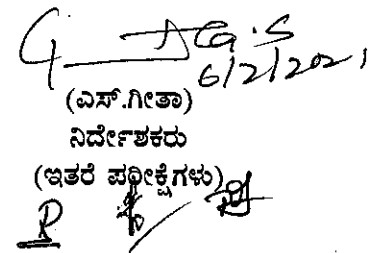 G.S
6/2/2021
(ಎಸ್.ಗೀತಾ)
ನಿರ್ದೇಶಕರು
(ಇತರೆ ಪರೀಕ್ಷೆಗಳು)